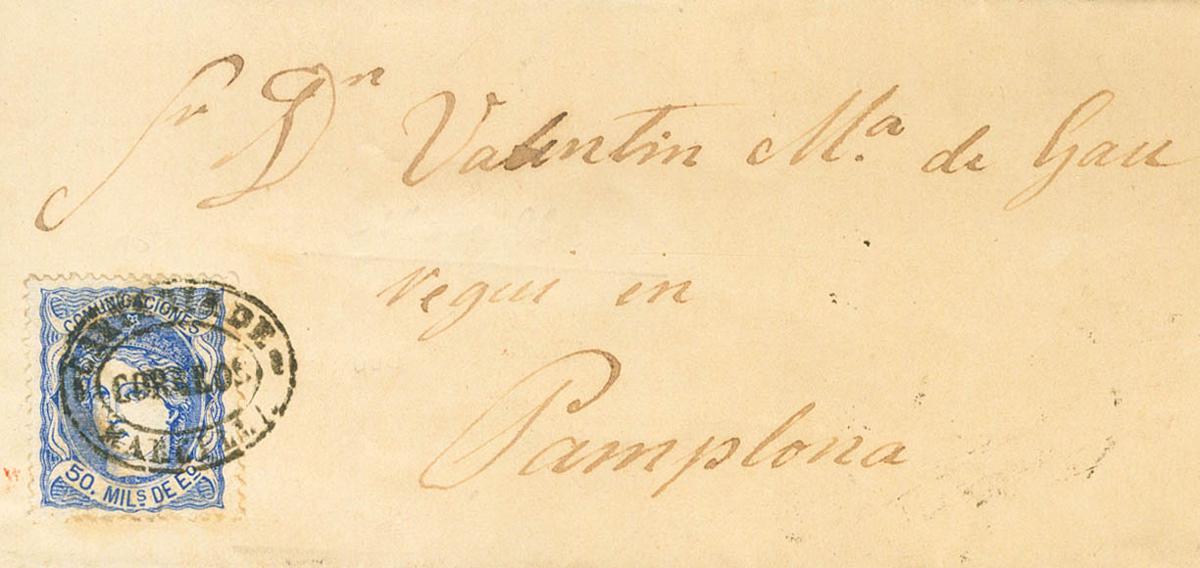 Sr Dn Valentin Mª de Gau
vegui en
Pamplona
COMUNICACIONES
DE
CORREOS
50. MILS DE Eº